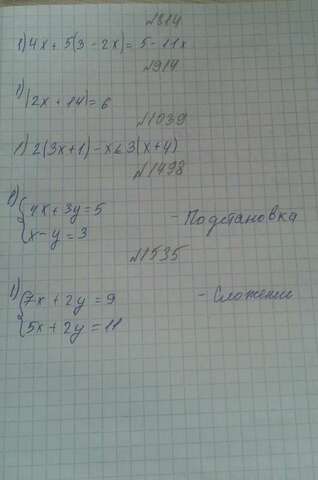 №814
1) 4x + 5(3 - 2x) = 5 - 11x
№914
1) |2x + 14| = 6
№1039
1) 2(3x+1) - x < 3(x+4)
№1498
1) {4x + 3y = 5
{x - y = 3 - Подстановка
№1535
1) {7x + 2y = 9 - Сложение
{5x + 2y = 11